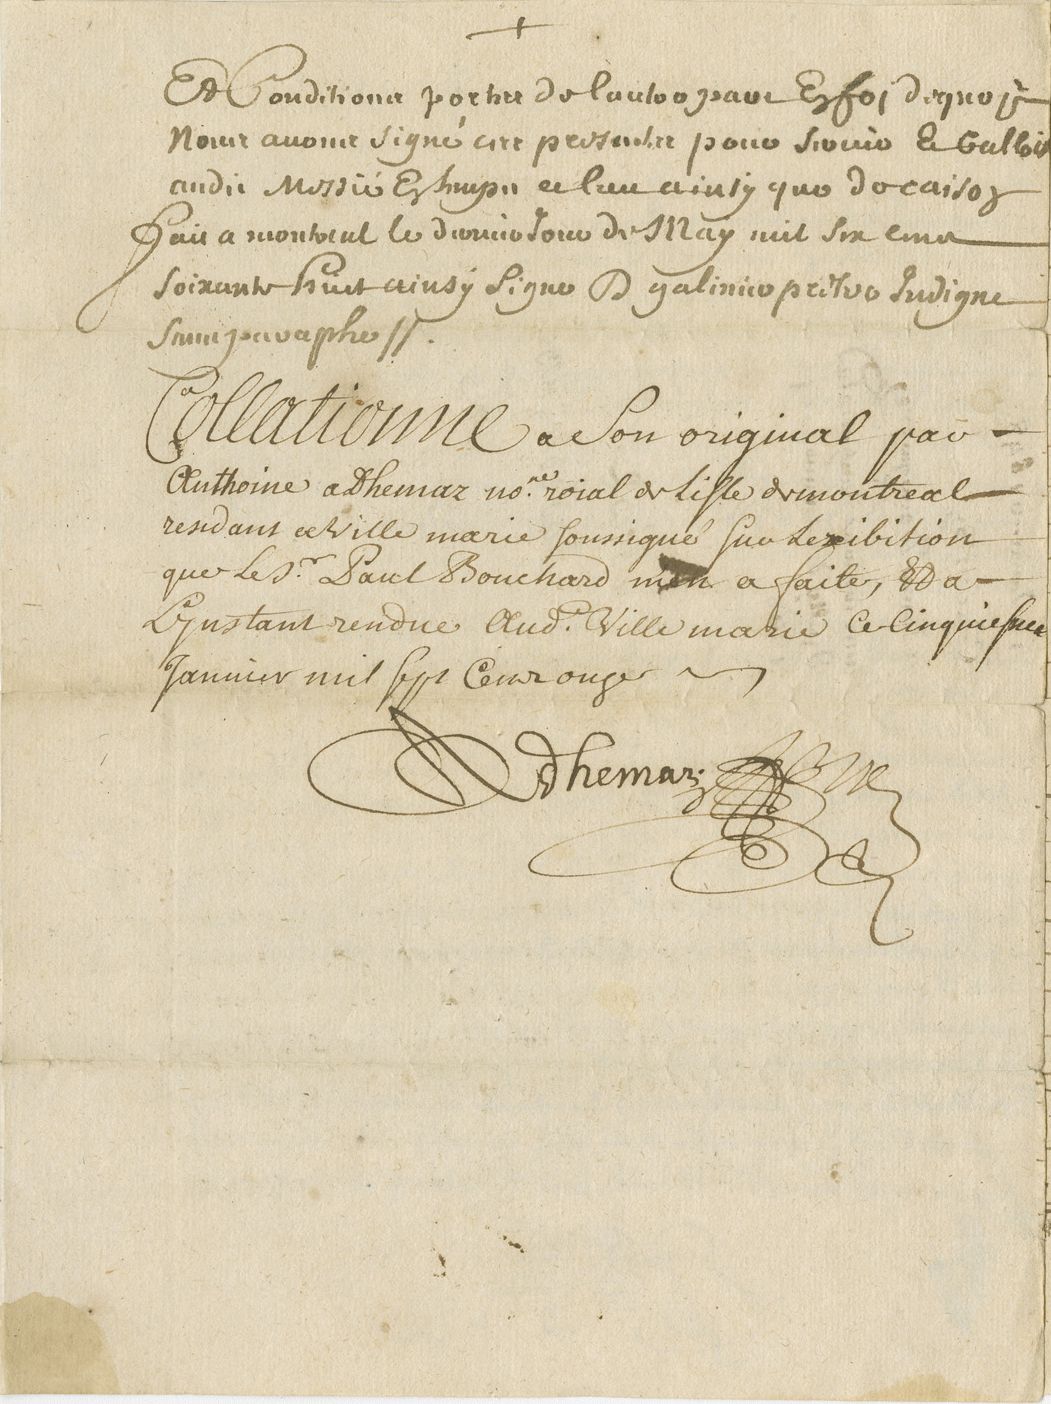 Et Conditions portez de lautre part En foi dequoy
Nous avons signé ces presentes pour servir & valloir
audit Messié En temps et lieu ainsy que de raison
fait a montreal le dernier Jour de May mil six cens
soixante huit ainsy signé D galinier prestre Indigne
sans paraphe //.
Collationne a Son original par
Anthoine aDhemar no.re roial de Lisle de montreal
residant a Ville marie soussigné sur Lexibition
que Le S.r Paul Bouchard m'en a faite, Et a
Lynstant rendue Aud.t Ville marie Ce Cinquiesme
Janvier mil sept Cens onze
Adhemar